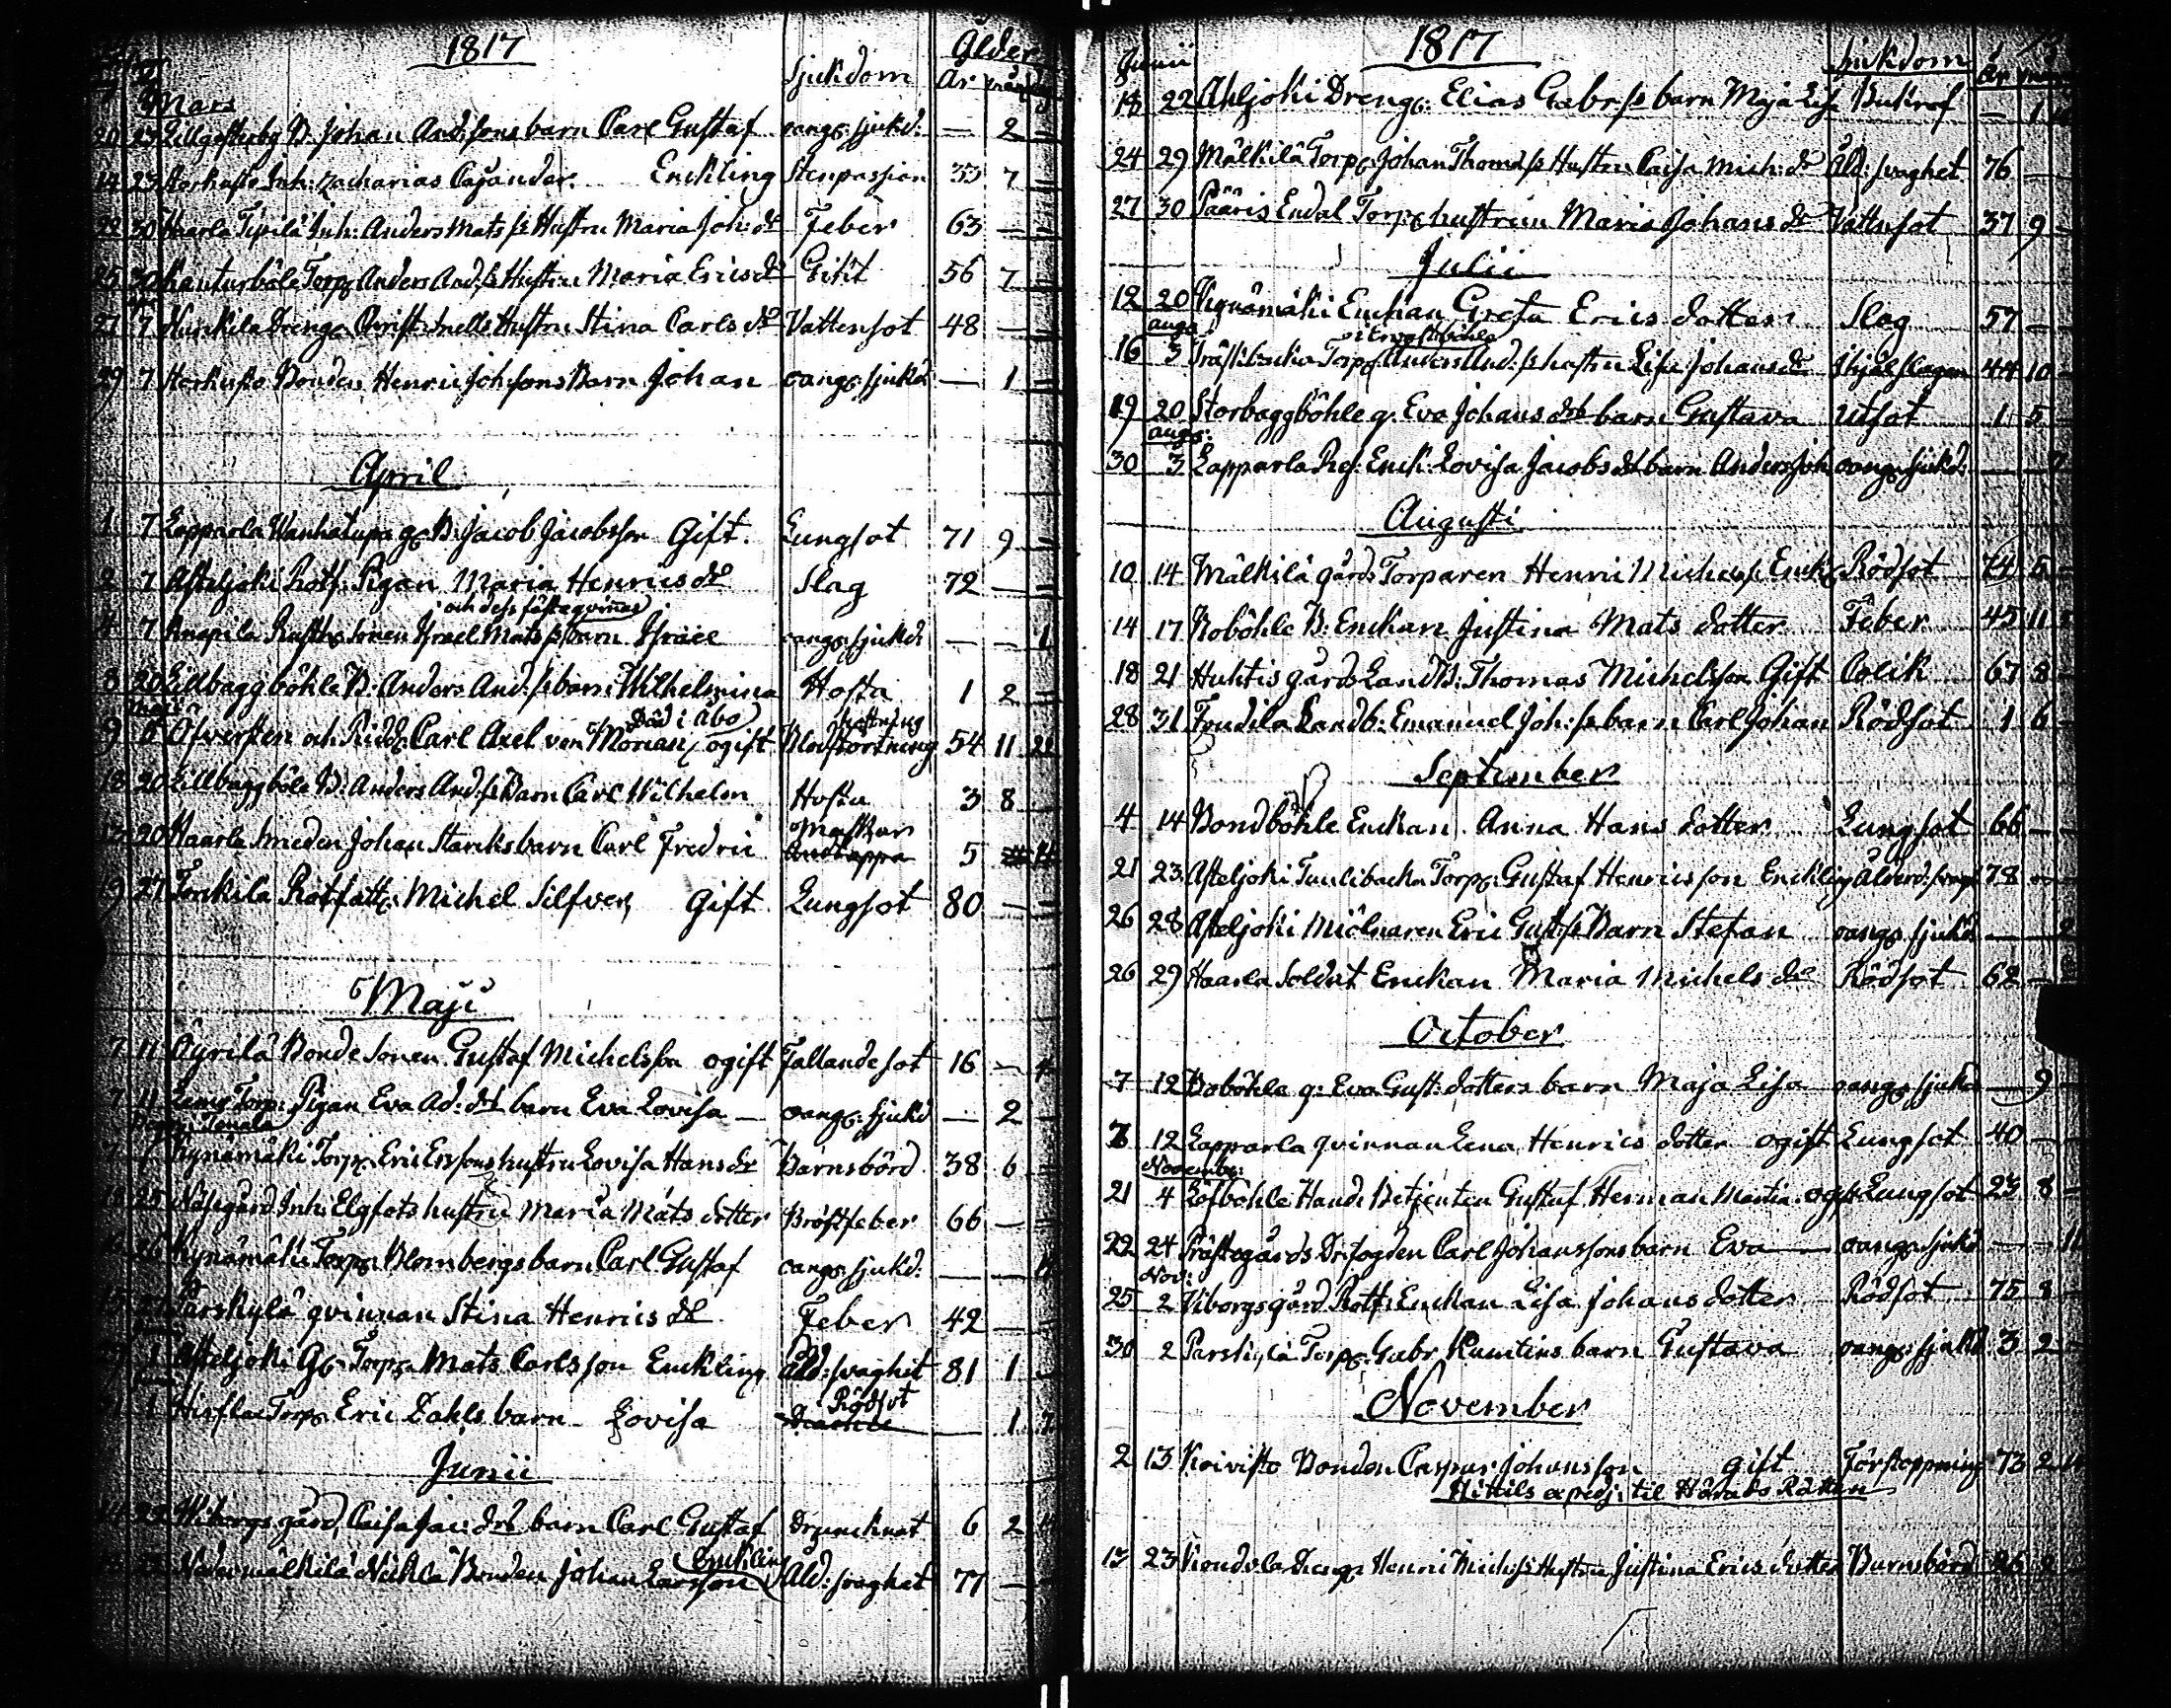 1817
Sjukdom Ålder
År mån
Mars
20 23 Lillgesterby B. Johan Ands:sons barn Carl Gustaf oang: sjukd: — 2 —
14 23 Storhusts Inh: Zacharias Cajander Enckling Stenpassion 33 7 —
22 30 Haarla Tipilä Inh: Anders Mats ss Hustru Maria Joh: dr Feber 63 — —
25 30 Kanturböle Torp: Anders And: ss Hustru Maria Erics dr Gikt 56 7 —
27 7 Hunkila Dreng: Christ: Snells Hustru Stina Carls dr Vattensot 48 — —
29 7 Bonden Henric Joh:sons Barn Johan oang: sjukd: — 1 —
April
1 7 Lapparla Wanhatupa g: B: Jacob Jacobsson Gift. Lungsot 71 9 —
2 7 Asteljoki Rotf: Pigan Maria Henrics dr Slag 72 — —
och dess fästeqvinnas
4 7 Knapila Rusth: sonen Israel Mats ss barn Israel oang: sjukd: — — 1
8 20 Lillbaggböhle B: Anders And: ss barn Wilhelmina Hosta 1 2 —
Maji
Död i Åbo
9 6 Öfversten och Ridd: Carl Axel von Morian, ogift Blodstörtning 54 11 21
18 20 Lillbaggböle B: Anders And: ss Barn Carl Wilhelm Hosta 3 8
Maskar
13 20 Haarla Smeden Johan Starcks barn Carl Fredric Andtäppa 5
9 27 Torkila Rotfatt: Michel Silfver, Gift Lungsot 80 —
Maji
7 11 Öyrilä Bonde Sonen Gustaf Michelsson ogift Fallandesot 16 — 4
7 11 Torp: Pigan Eva Ad: dr barn Eva Lovisa — oang: sjukd — 2 —
Tenala
7 7 Kynämäki Torp: Eric Ersons hustru Lovisa Hans dr Barnsbörd 38 6 —
25 Näsegård Inh: Elgfots hustru Maria Mats dotter Bröstfeber 66 — —
26 Kynämäki Torp: Blombergs barn Carl Gustaf oang: sjukd: — —
Parskylä qvinnan Stina Henrics dr Feber 42 —
1 Asteljoki G: Torp: Mats Carlsson Enckling Åld: svaghet 81 1 —
Rödsot
1 Torp: Eric Dahls barn Lovisa — 1
Junii
22 Wiborgs gård, Caisa Jac: drs barn Carl Gustaf Drunknat 6 2
Enckling
Nedermälkilä Nickla Bonden Johan Larsson Åld: svaghet 77 —
1817
Junii Sjukdom År
18 22 Ahljoki Dreng: Elias Gabr: ss barn Maja Lisa Bukref — 1
24 29 Mälkilä Torp: Johan Thoms ss Hustru Caisa Mich: dr Åld: svaghet 76 —
27 30 Pääris Endal Torp: hustrun Maria Johans dr Vattusot 37 9 —
Julii
12 20 Kynämäki Enckan Greta Erics dotter Slag 57 —
aug:
16 3 Torp: Anders And: ss hustru Lisa Johans dr ihjälslagen 44 10 —
19 20 Storbaggböhle q. Eva Johans drs barn Gustava Utsot 1 5 —
aug:
30 3 Lapparla Enck: Lovisa Jacobs dr barn Anders Joh oang: sjukd: —
Augusti
10 14 Mälkilä gårds Torparen Henric Michels ss Enck: Rödsot 74 5 —
14 17 Boböhle B: Enckan Justina Mats dotter Feber 45 11
18 21 Huhtis gård LandB: Thomas Michelsson Gift Colik 67 8 —
28 31 Tondila Landb: Emanuel Joh: ss barn Carl Johan Rödsot 1 6 —
September
4 14 Bondböhle Enckan Anna Hans dotter Lungsot 66 —
21 23 Asteljoki Tunlibacka Torp: Gustaf Henricsson Enckling Ålderd: svagh 78
26 28 Asteljoki Miölnaren Eric Gust: ss Barn Stefan oang: sjukd — 2
26 29 Haarla Soldat Enckan Maria Michels dr Rödsot 62 —
October
7 12 Boböhle q: Eva Gust: dotters barn Maja Lisa oang: sjukd — 9 —
7 12 Lapparla qvinnan Lena Henrics dotter ogift Lungsot 40 —
Novemb:
21 4 Löfböhle Hand: Betjenten Gustaf Herman Martin ogift Lungsot 23 8 —
22 24 Prästegårds Dr:fogden Carl Johanssons barn Eva — oang: sjukd — — 11
Nov:
25 2 Viborgsgård Rotf: Enckan Lisa Johans dotter Rödsot 75 8 —
30 2 Parskylä Torp: Gabr Kumlins barn Gustava oang: sjukd 3 2 —
November
2 13 Koivisto Bonden Caspar Johansson gift Förstoppning 73 2
Hittils exped: til Härads Rätten
13 23 Dreng: Henric Michs: ss Hustru Justina Erics dotter Barnsbörd 26